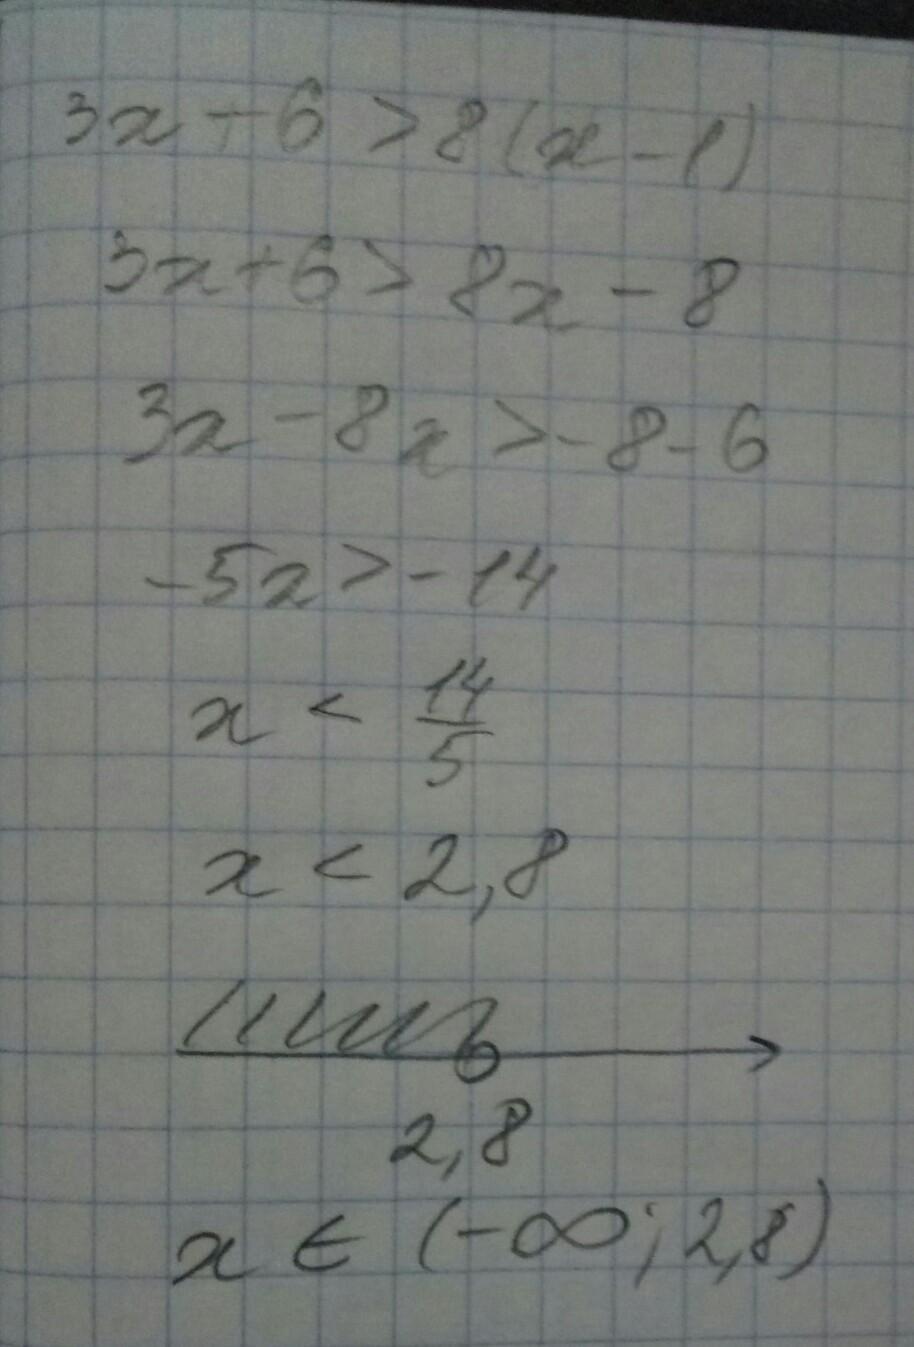 3x + 6 > 8(x - 1)
3x + 6 > 8x - 8
3x - 8x > - 8 - 6
-5x > - 14
x < 14/5
x < 2,8
2,8
x ∈ (-∞; 2,8)